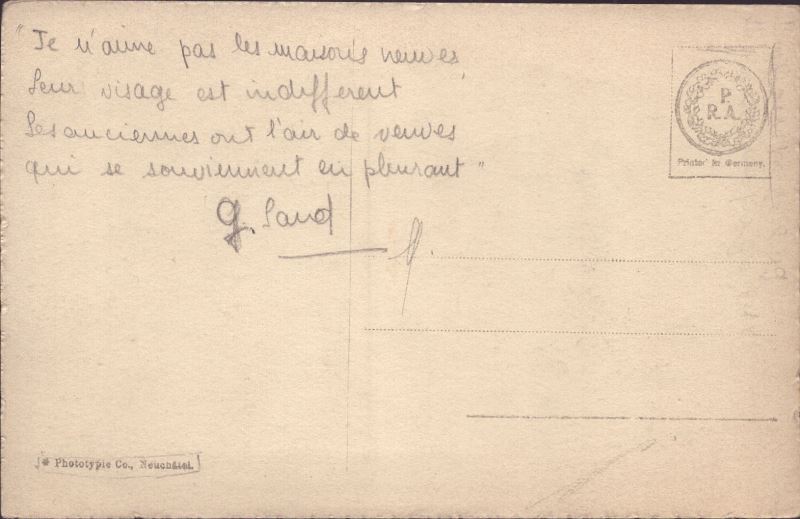 "Je n'aime pas les maisons neuves
Leur visage est indifferent
Les anciennes ont l'air de veuves
qui se souviennent en pleurant"
G. Sand
P.
R.A.
Printed in Germany.
* Phototypie Co., Neuchâtel.